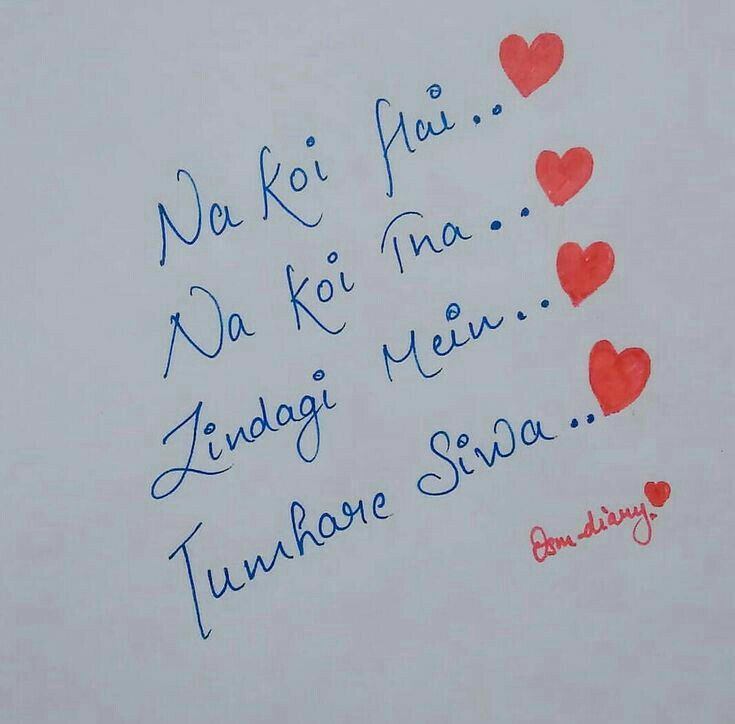 Na Koi Hai..
Na Koi Tha...
Zindagi Mein..
Tumhare Siwa..
Osm-diary.